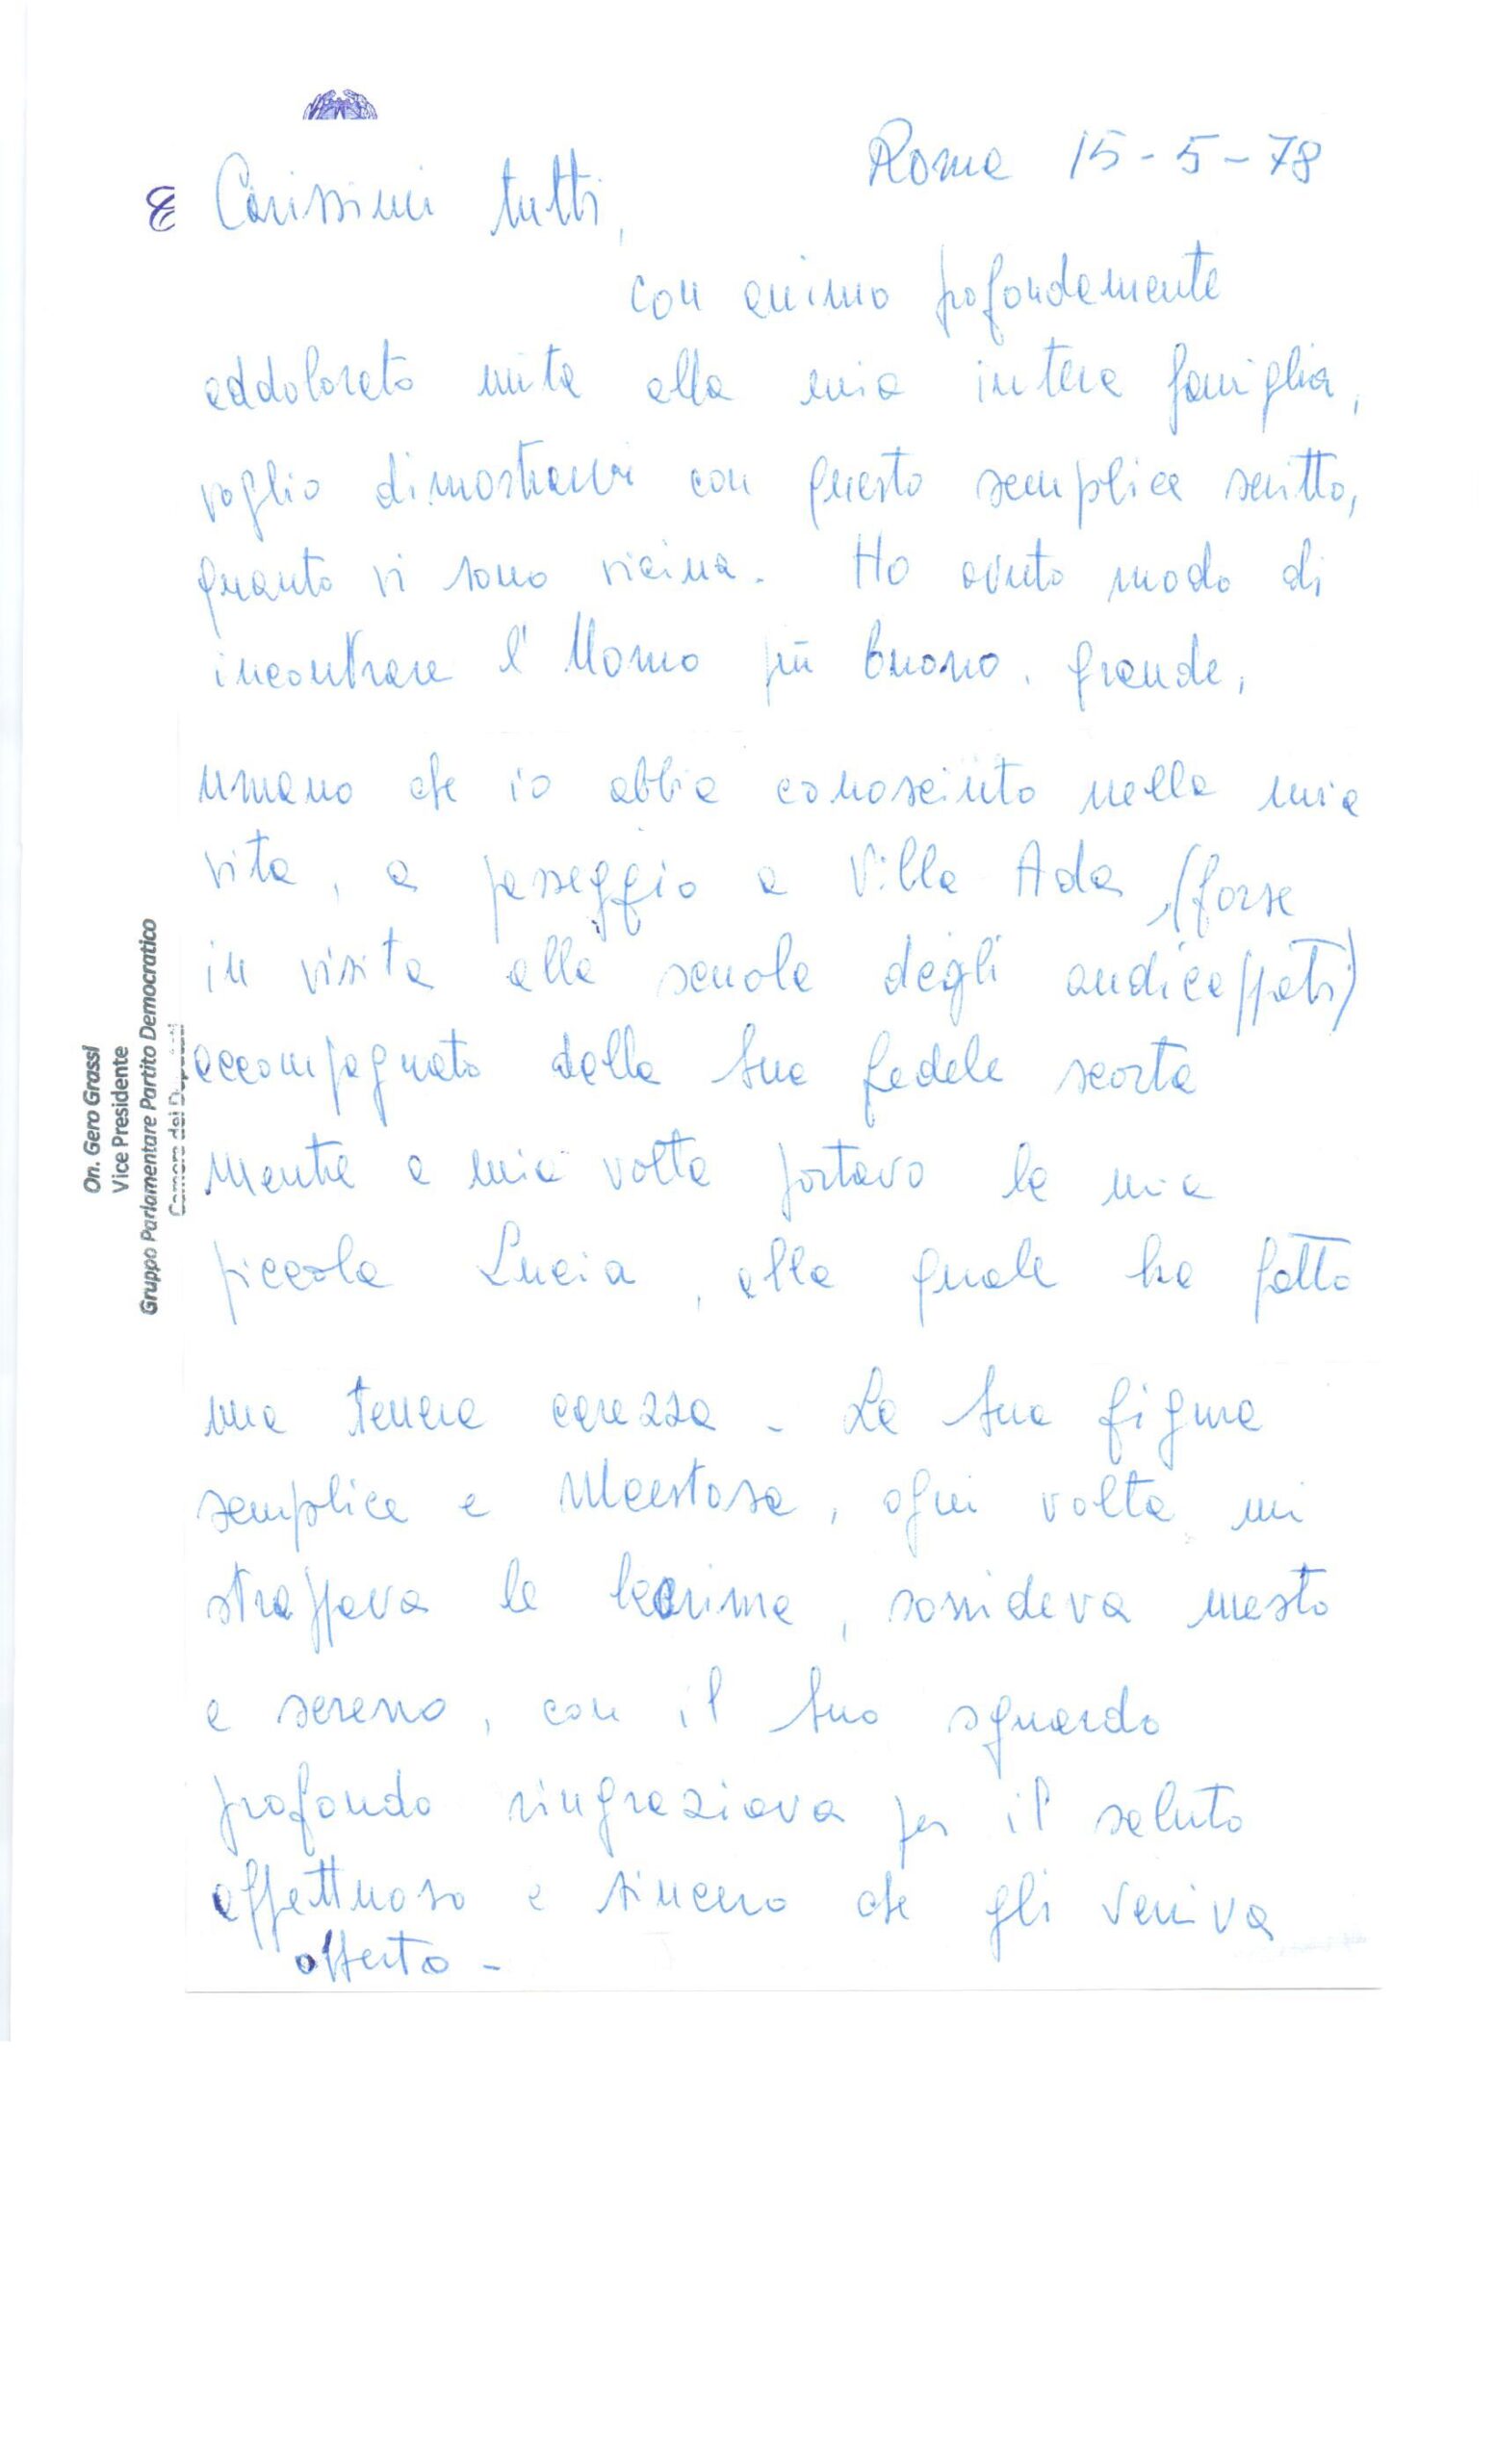 Roma 15-5-78
Carissimi tutti,
con animo profondamente
addolorato unita alla mia intera famiglia,
voglio dimostrarvi con questo semplice scritto,
quanto vi sono vicina. Ho avuto modo di
incontrare l'Uomo più buono, grande,
umano che io abbia conosciuto nella mia
vita, a passeggio a Villa Ada (forse
in visita alla scuola degli andicappati)
accompagnato dalla Sua fedele scorta
mentre a mia volta portavo la mia
piccola Lucia, alla quale ha fatto
una tenera carezza - La Sua figura
semplice e Maestosa, ogni volta mi
strappava le lacrime, sorrideva mesto
e sereno, con il Suo sguardo
profondo ringraziava per il saluto
affettuoso e sincero che gli veniva
offerto -
On. Gero Grassi
Vice Presidente
Gruppo Parlamentare Partito Democratico
Camera dei Deputati